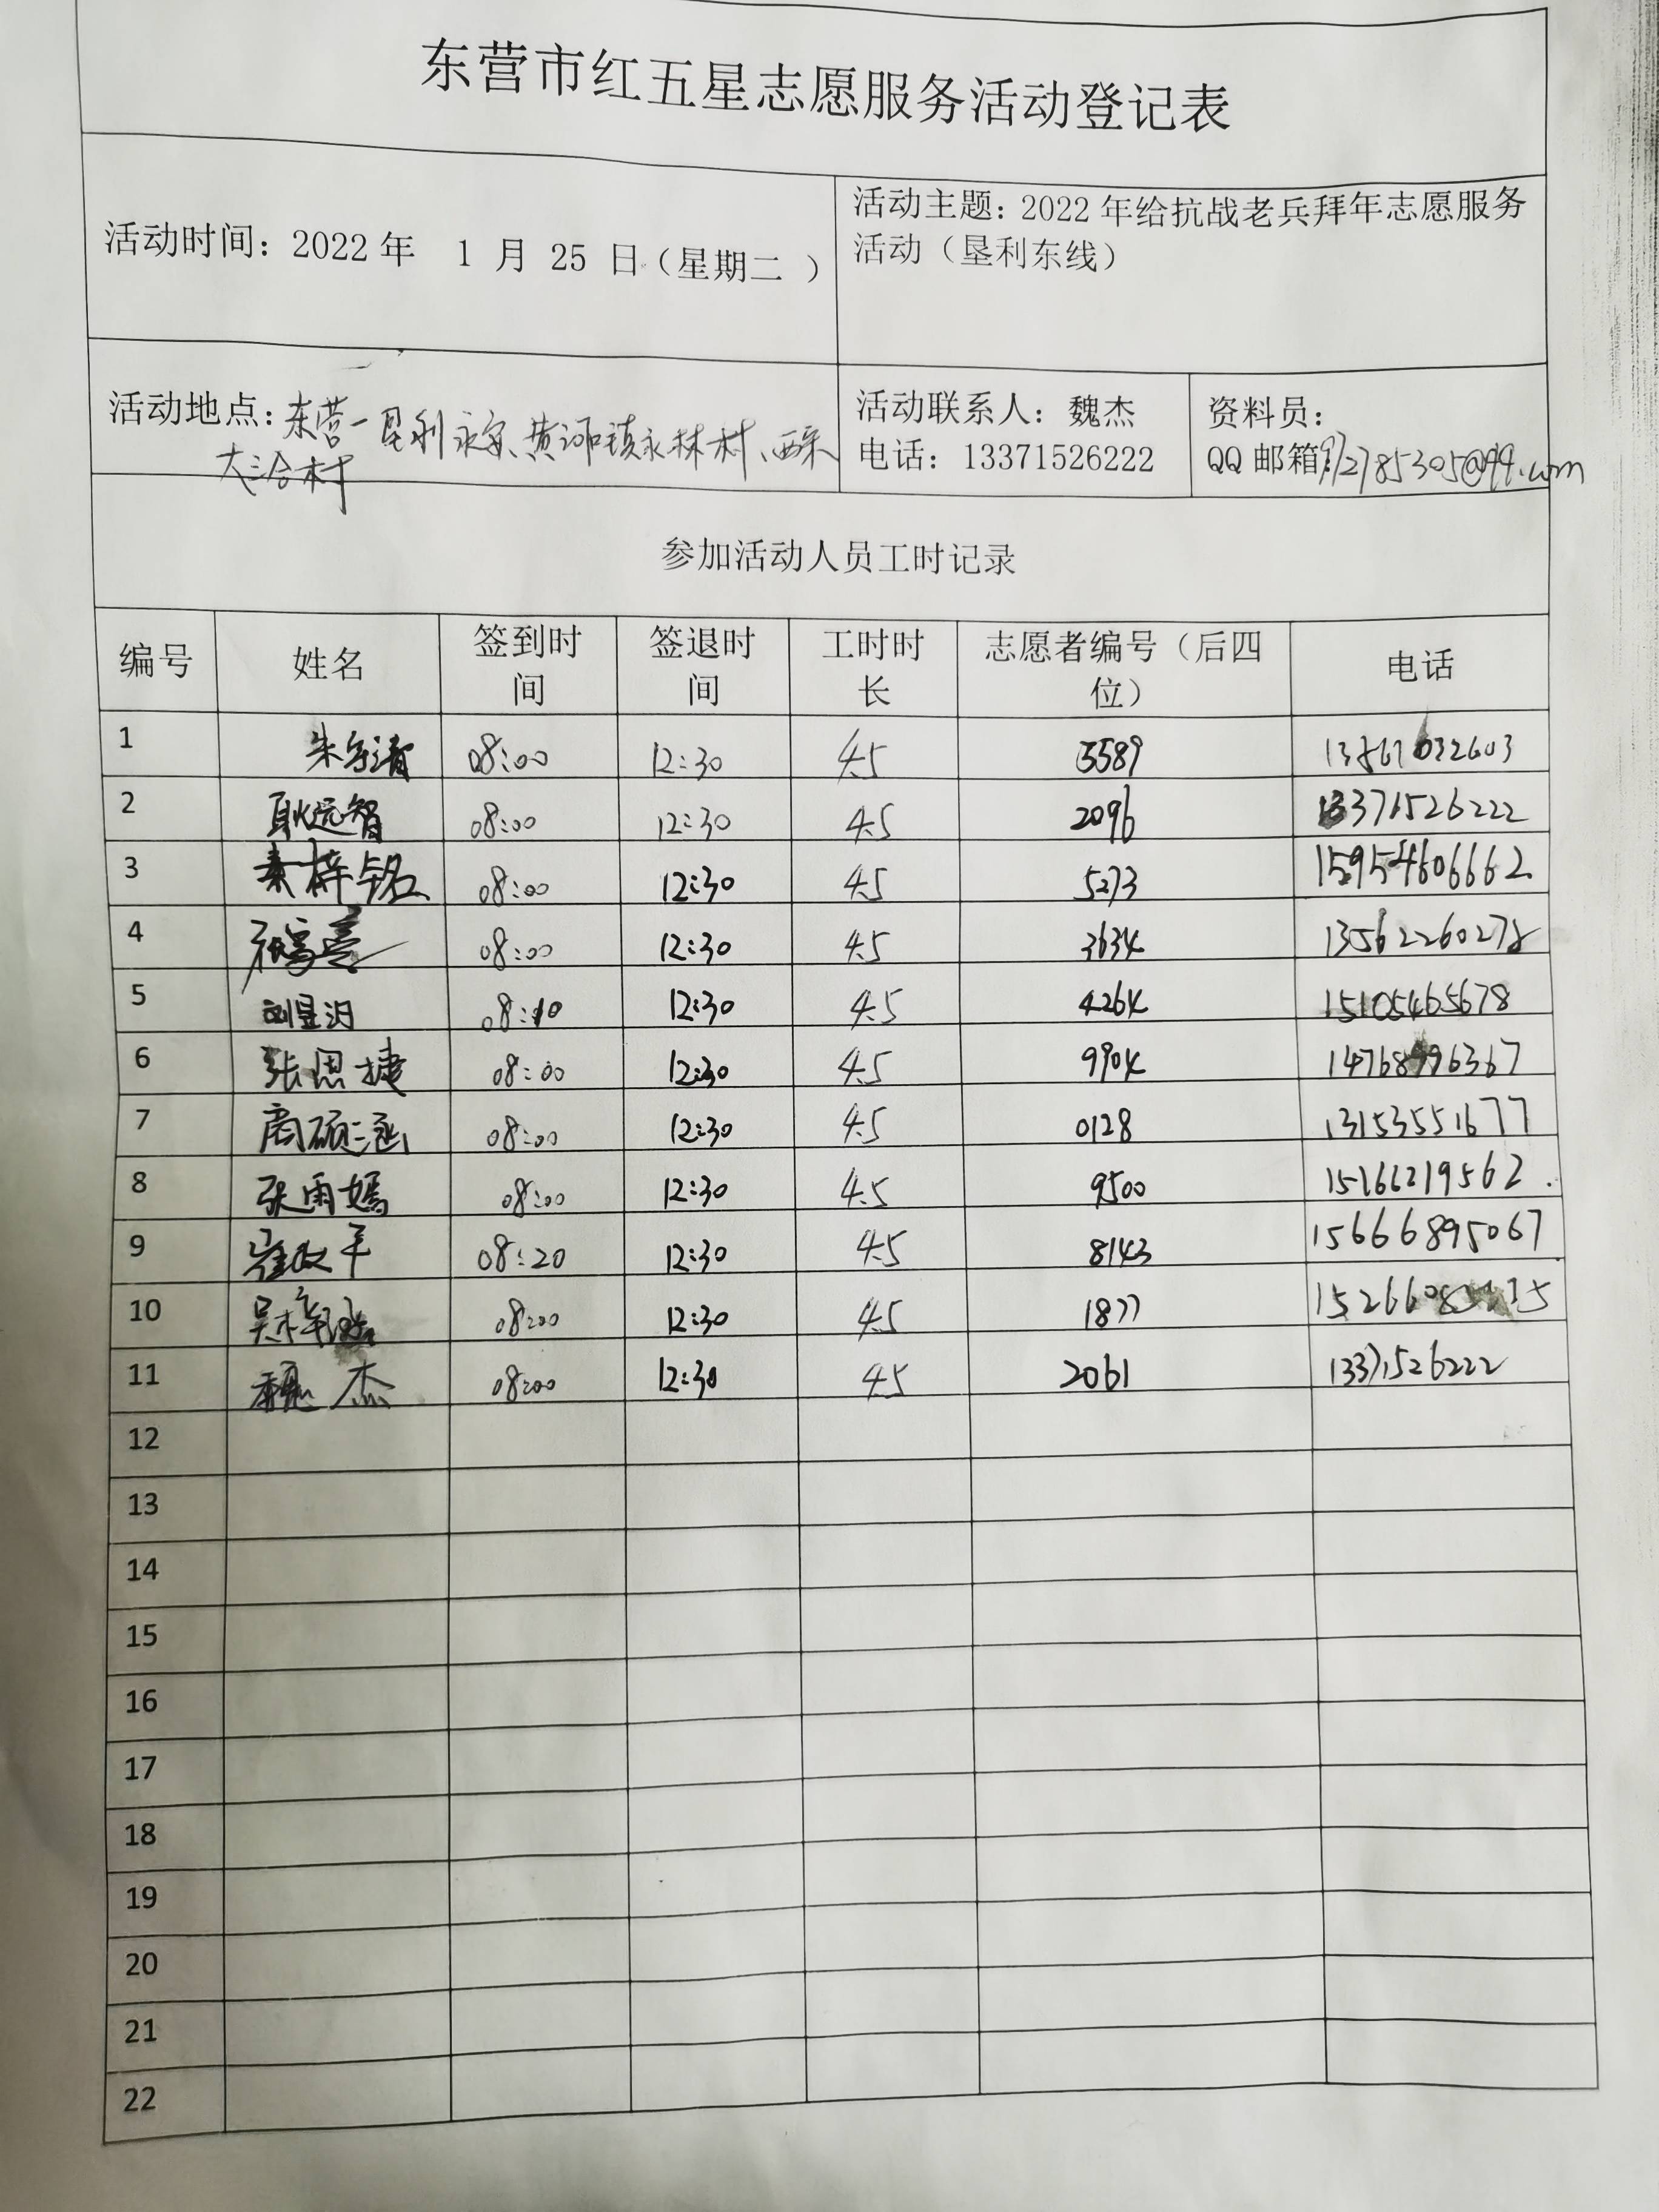 东营市红五星志愿服务活动登记表
活动时间：2022年 1 月 25 日（星期二 ）
活动主题：2022年给抗战老兵拜年志愿服务
活动（垦利东线）
活动地点：东营一垦利永安、黄河口镇永林村、西宋
大三合村
活动联系人：魏杰
电话：13371526222
资料员：
QQ邮箱：912785305@qq.com
参加活动人员工时记录
编号 姓名 签到时间 签退时间 工时时长 志愿者编号（后四位） 电话
1 朱 08:00 12:30 4.5 3589
2 耿远智 08:00 12:30 4.5 2096 13371526222
3 秦梓铭 08:00 12:30 4.5 5273 15954606662
4 08:00 12:30 4.5 3634 13562260278
5 刘昱汐 08:10 12:30 4.5 4264 15105465678
6 张恩捷 08:00 12:30 4.5 9904 14768996367
7 商硕涵 08:00 12:30 4.5 0128 13153551677
8 张雨嫣 08:00 12:30 4.5 9500 15166219562
9 崔政平 08:20 12:30 4.5 8143 15666895067
10 吴 08:00 12:30 4.5 1877
11 魏杰 08:00 12:30 4.5 2061 13371526222
12
13
14
15
16
17
18
19
20
21
22